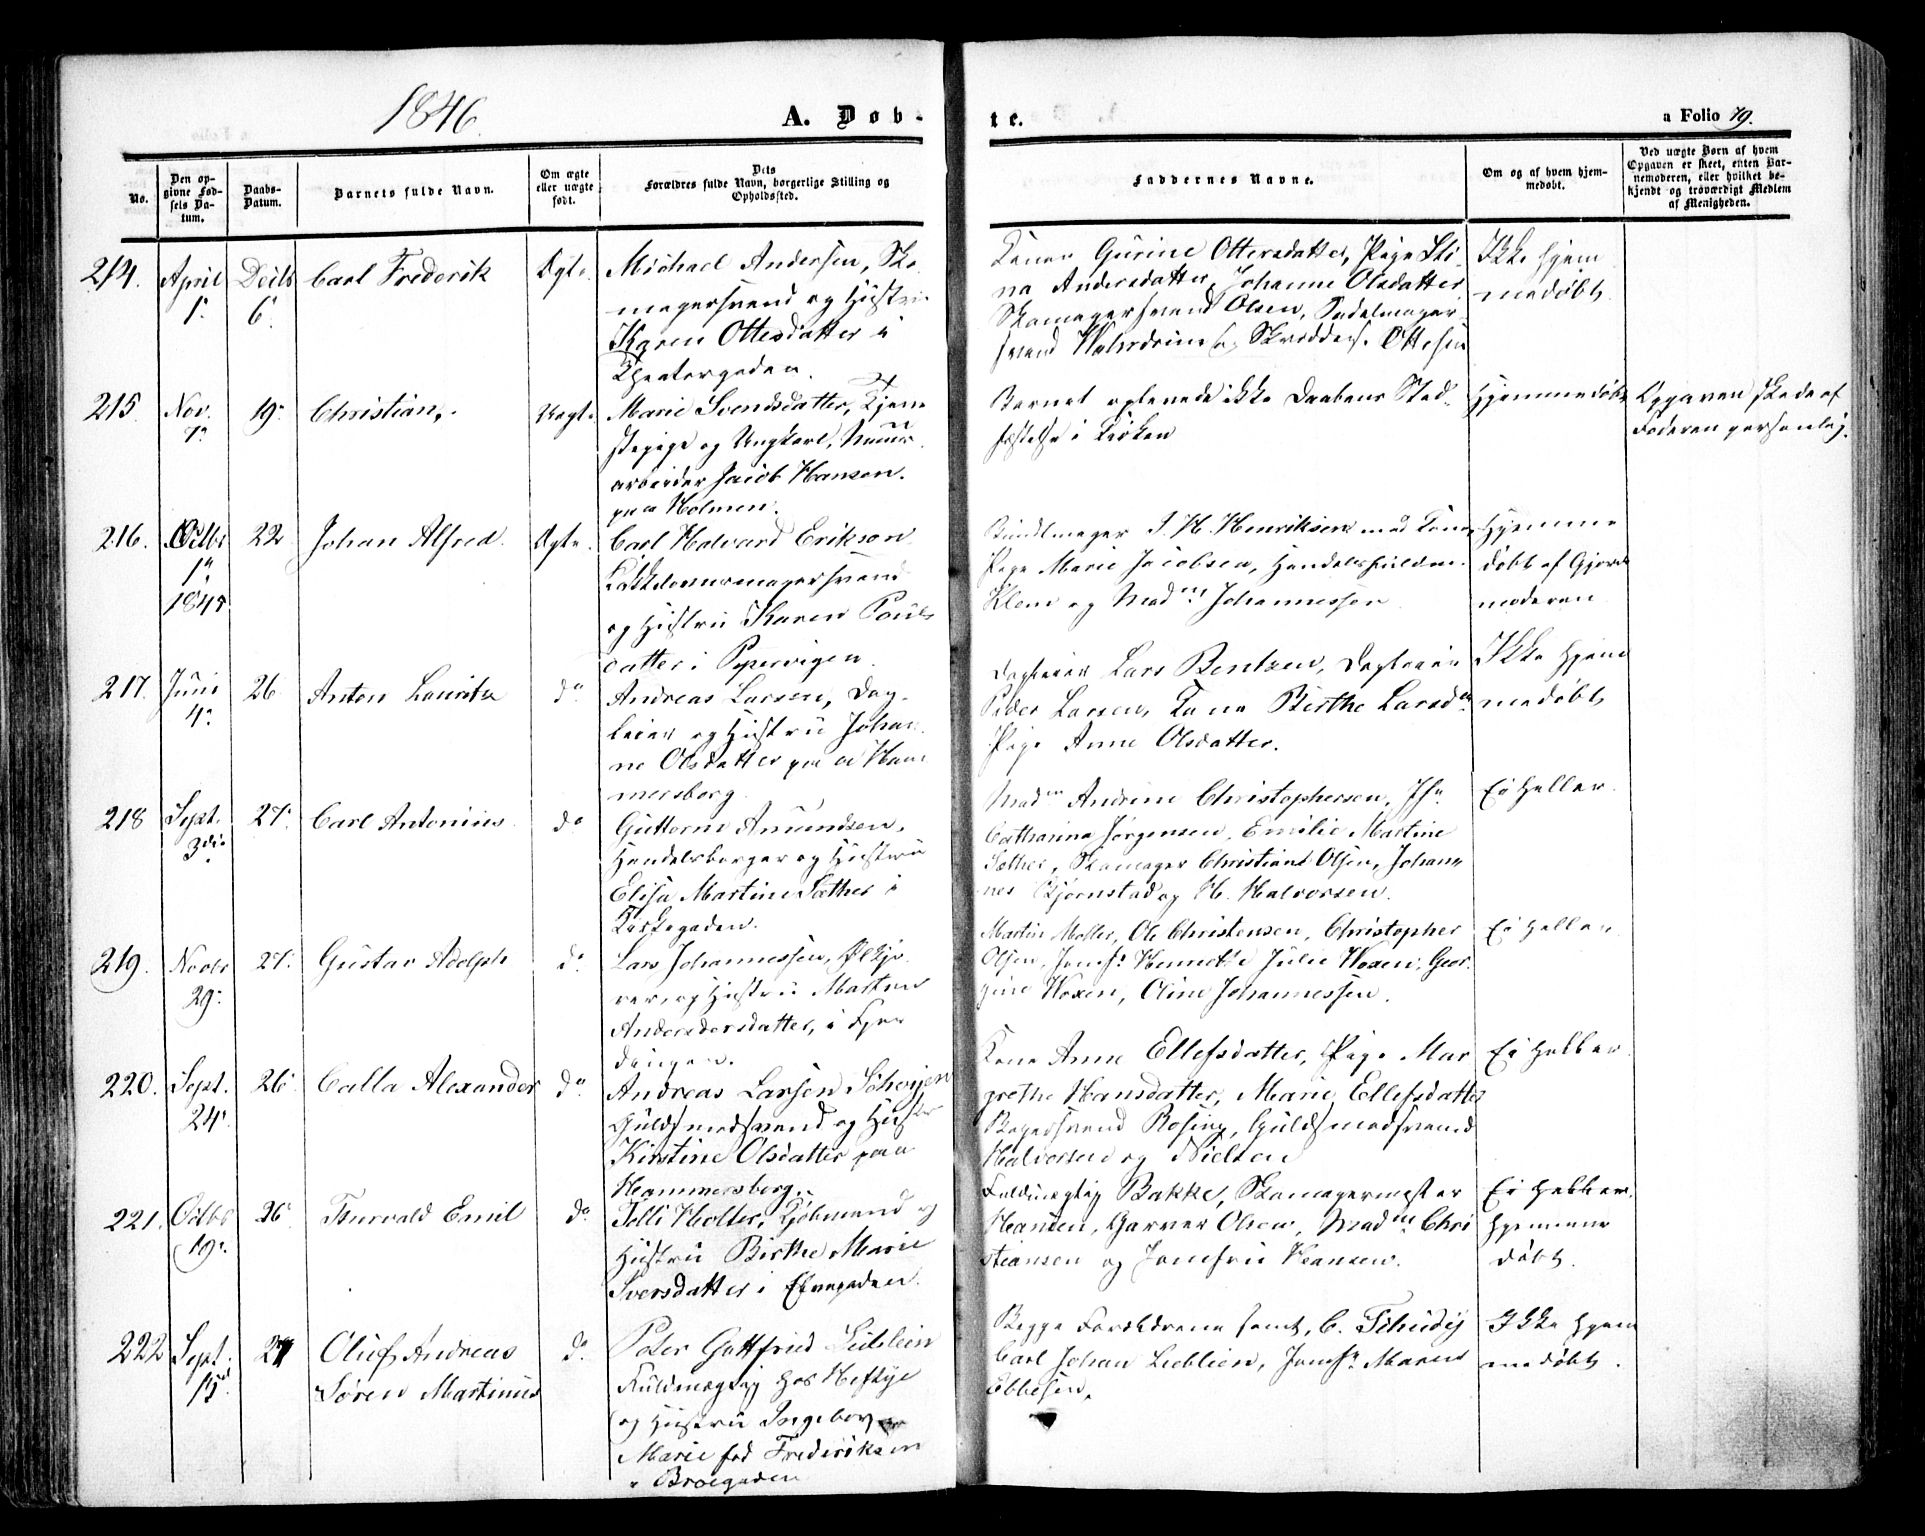 1846.
A. Døb-
te.
a Folio 79.
No.
Den op-
givne Fød-
sels Da-
tum.
Daabs-
Datum.
Barnets fulde Navn.
Om ægte
eller uægte
født.
Dets
Forældres fulde Navn, borgerlige Stilling og
Opholdssted.
Faddernes Navne.
Om og af hvem hjem-
medøbt.
Ved uægte Børn af hvem
Opgaven er skeet, enten Bar-
nemoderen, eller hvilket be-
kjendt og troværdigt Medlem
af Menigheden.
214.
April
1.
6
Carl Frederik
Ægte.
Michael Andersen, Sko-
magersvend og Hustru
Karen Ottesdatter i
Theatergaden.
Kone Gurine Ottersdatter, Pige Sti-
na Andersdatter, Johanne Olsdatter,
Skomagersvend Olsen, Sadelmager-
svend og Ottesen
Ikke hjem-
medøbt
215
Nov.
7
19
Christian,
Uægte
Marie Svendsdatter, Tjene-
stepige og Ungkarl, Muur-
arbeider Jacob Hansen.
paa Holmen.
Barnet oplevede ikke Daabens Stad-
fæstelse i Kirken
Hjemmedøbt
Opgaven skede af
Faderen personlig.
216.
Octbr
1
1845
22
Johan Alfred.
Ægte.
Carl Halvard Erikson
og Hustru Karen Pouls-
datter i Pipervigen.
Bundtmager J. H. Henriksen med Kone
Pige Marie Jacobsen,
Klem og Mad. Johannessen
Hjemme-
døbt af Gjorde-
moderen
217.
Juni
4
26
Anton Lauritz
do
Andreas Larsen, Dag-
leier og Hustru Johan-
ne Olsdatter paa Ham-
mersborg.
Dagleier Lars Bentzen, Dagleier
Peder Larsen, Kone Birthe Larsd.
Pige Anne Olsdatter.
Ikke hjem-
medøbt
218
Sept.
27.
Carl Antonius
do
Guttorm Amundsen,
Handelsborger og Hustru
Elisa Martine Sæther i
Kirkegaden.
Mad. Andrine Christophersen, Jfr.
Catharina Jørgensen, Emilie Martine
Sæther, Skomager Christian Olsen, Johan-
nes Bjørnstad og H. Halvorsen.
Ei heller.
219.
Novbr
29
27.
Gustav Adolph
do
Lars Johannessen,
og Hustru
Andersdatter, i Fjer-
dingen.
Martin Moller, Ole Christensen, Christopher
Olsen, Jomf. Julie Woxen, Geor-
gine Woxen, Oline Johannessen.
Ei heller
220.
Sept.
24
26
Calla Alexander
do.
Andreas Larsen
Guldsmedsvend og Hustru
Kirstine Olsdatter paa
Hammersborg.
Kone Anne Ellefsdatter, Pige Mar-
grethe Hansdatter, Marie Ellefsdatter
Bagersvend Rosing, Guldsmedsvend
Halvorsen og Nielsen
Ei heller.
221.
Octbr
19
26
Thorvald Emil
do.
Holter, Kjøbmand og
Hustru Birthe Marie
Iversdatter i
Fuldmægtig Bakke, Skomagermester
Hansen, Garver Olsen, Mad. Chri-
stiansen og Jomfru Hansen.
Ei heller.
hjemme-
døbt.
222
Sept.
15
27
Oluf Andreas
Søren Martinius
do.
Peter Gottfried Lieblein
Fuldmægtig hos Heftye
og Hustru Ingeborg
Marie fød Frederiksen
i Brogaden
Begge Forældrene samt, C. Tschudy
Carl Johan Lieblein, Jomfr. Maren
Ebbesen.
Ikke hjem-
medøbt.